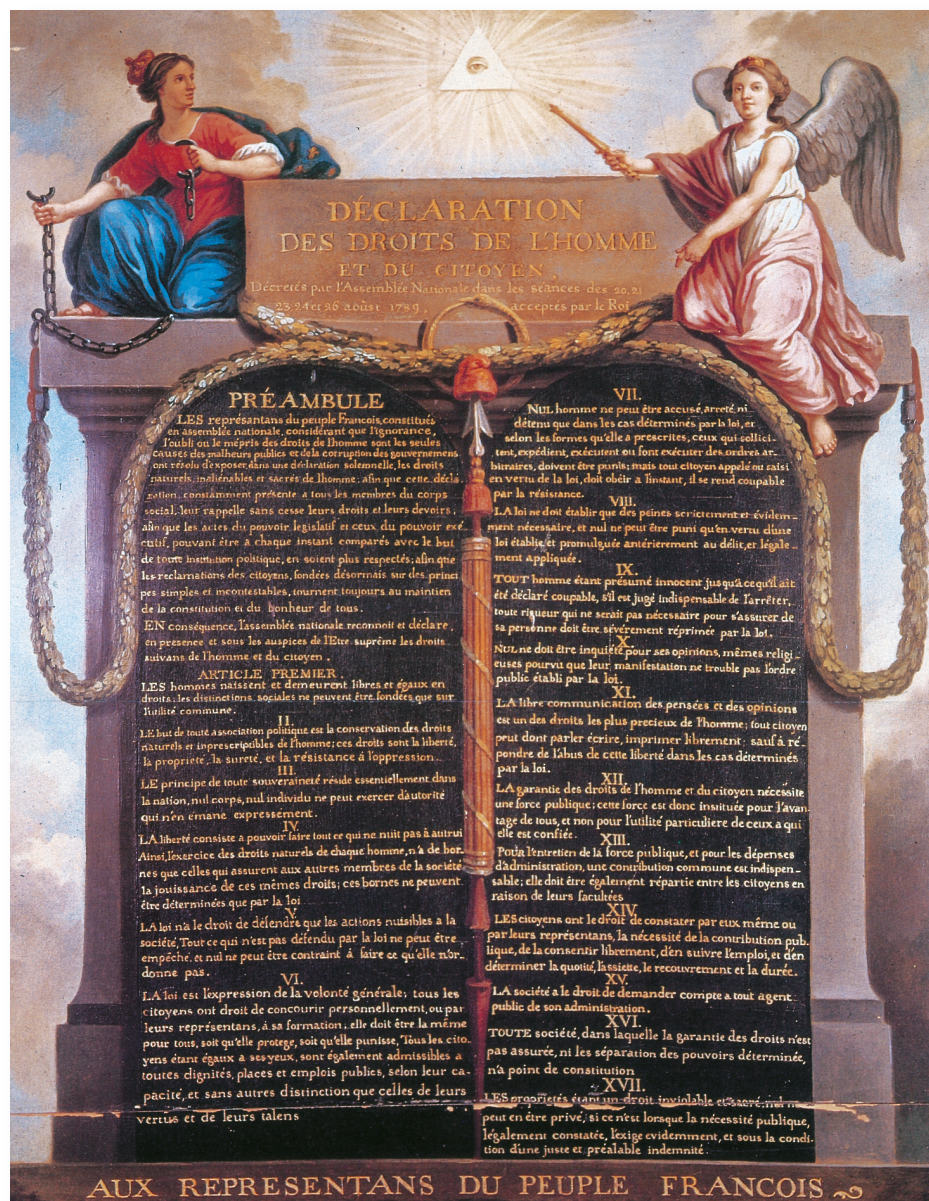 DÉCLARATION
DES DROITS DE L'HOMME
ET DU CITOYEN,
Décretés par l'Assemblée Nationale dans les séances des 20, 21
23, 24 et 26 août 1789, acceptés par le Roi
PRÉAMBULE
LES représantans du peuple François, constitués
en assemblée nationale, considérant que l'ignorance,
l'oubli ou le mépris des droits de l'homme sont les seules
causes des malheurs publics et de la corruption des gouvernemens
ont résolu d'exposer, dans une déclaration solemnelle, les droits
naturels, inaliénables et sacrés de l'homme; afin que cette décla
ration, constamment présente a tous les membres du corps
social, leur rappelle sans cesse leurs droits et leurs devoirs;
afin que les actes du pouvoir législatif et ceux du pouvoir exé-
cutif, pouvant être à chaque instant comparés avec le but
de toute institution politique, en soient plus respectés; afin que
les reclamations des citoyens, fondées désormais sur des princi
pes simples et incontestables, tournent toujours au maintien
de la constitution et du bonheur de tous.
EN conséquence, l'assemblée nationale reconnoit et déclare,
en presence et sous les auspices de l'Etre suprême les droits
suivans de l'homme et du citoyen.
ARTICLE PREMIER.
LES hommes naissent et demeurent libres et égaux en
droits; les distinctions sociales ne peuvent être fondées que sur
l'utilité commune.
II.
LE but de toute association politique est la conservation des droits
naturels et inprescriptibles de l'homme; ces droits sont la liberté,
la propriété, la sureté, et la résistance à l'oppression.
III.
LE principe de toute souveraineté réside essentiellement dans
la nation, nul corps, nul individu ne peut exercer d'autorité
qui n'en émane expressément.
IV.
LA liberté consiste a pouvoir faire tout ce qui ne nuit pas à autrui
Ainsi, l'exercice des droits naturels de chaque homme, n'a de bor-
nes que celles qui assurent aux autres membres de la société
la jouissance de ces mêmes droits; ces bornes ne peuvent
être déterminées que par la loi
V.
LA loi n'a le droit de défendre que les actions nuisibles a la
société, Tout ce qui n'est pas défendu par la loi ne peut être
empêché, et nul ne peut être contraint à faire ce qu'elle n'or-
donne pas.
VI.
LA loi est l'expression de la volonté générale; tous les
citoyens ont droit de concourir personnellement, ou par
leurs représentans, à sa formation; elle doit être la même
pour tous, soit qu'elle protege, soit qu'elle punisse, Tous les cito-
yens étant égaux a ses yeux, sont également admissibles a
toutes dignités, places et emplois publics, selon leur ca-
pacité, et sans autres distinction que celles de leurs
vertus et de leurs talens
VII.
NUL homme ne peut être accusé, arreté, ni
détenu que dans les cas déterminés par la loi, et
selon les formes qu'elle a prescrites, ceux qui sollici-
tent, expédient, exécutent ou font exécuter des ordres ar-
bitraires, doivent être punis; mais tout citoyen appelé ou saisi
en vertu de la loi, doit obéir a l'instant, il se rend coupable
par la résistance.
VIII.
LA loi ne doit établir que des peines strictement et évidem-
ment nécessaire, et nul ne peut être puni qu'en vertu d'une
loi établie et promulguée antérierement au délit, et légale-
ment appliquée.
IX.
TOUT homme étant présumé innocent jusqu'a ce qu'il ait
été déclaré coupable, s'il est jugé indispensable de l'arrêter,
toute rigueur qui ne serait pas nécessaire pour s'assurer de
sa personne doit être sévèrement réprimée par la loi.
X.
NUL ne doit être inquiété pour ses opinions, mêmes religi-
euses pourvu que leur manifestation ne trouble pas l'ordre
public établi par la loi.
XI.
LA libre communication des pensées et des opinions
est un des droits les plus precieux de l'homme; tout citoyen
peut dont parler écrire, imprimer librement; sauf à ré-
pondre de l'abus de cette liberté dans les cas déterminés
par la loi.
XII.
LA garantie des droits de l'homme et du citoyen nécessite
une force publique; cette force est donc instituée pour l'avan-
tage de tous, et non pour l'utilité particuliere de ceux a qui
elle est confiée.
XIII.
POUR l'entretien de la force publique, et pour les dépenses
d'administration, une contribution commune est indispen-
sable; elle doit être également répartie entre les citoyens en
raison de leurs facultées
XIV.
LES citoyens ont le droit de constater par eux même ou
par leurs représentans, la nécessité de la contribution pub-
lique, de la consentir librement, d'en suivre l'emploi, et d'en
déterminer la quotité, l'assiette, le recouvrement et la durée.
XV.
LA société a le droit de demander compte a tout agent
public de son administration.
XVI.
TOUTE société, dans laquelle la garantie des droits n'est
pas assurée, ni les séparation des pouvoirs déterminée,
n'a point de constitution
XVII.
LES propriétés étant un droit inviolable et sacré, nul ne
peut en être privé, si ce n'est lorsque la nécessité publique,
légalement constatée, l'exige evidemment, et sous la condi-
tion d'une juste et préalable indemnité.
AUX REPRESENTANS DU PEUPLE FRANCOIS